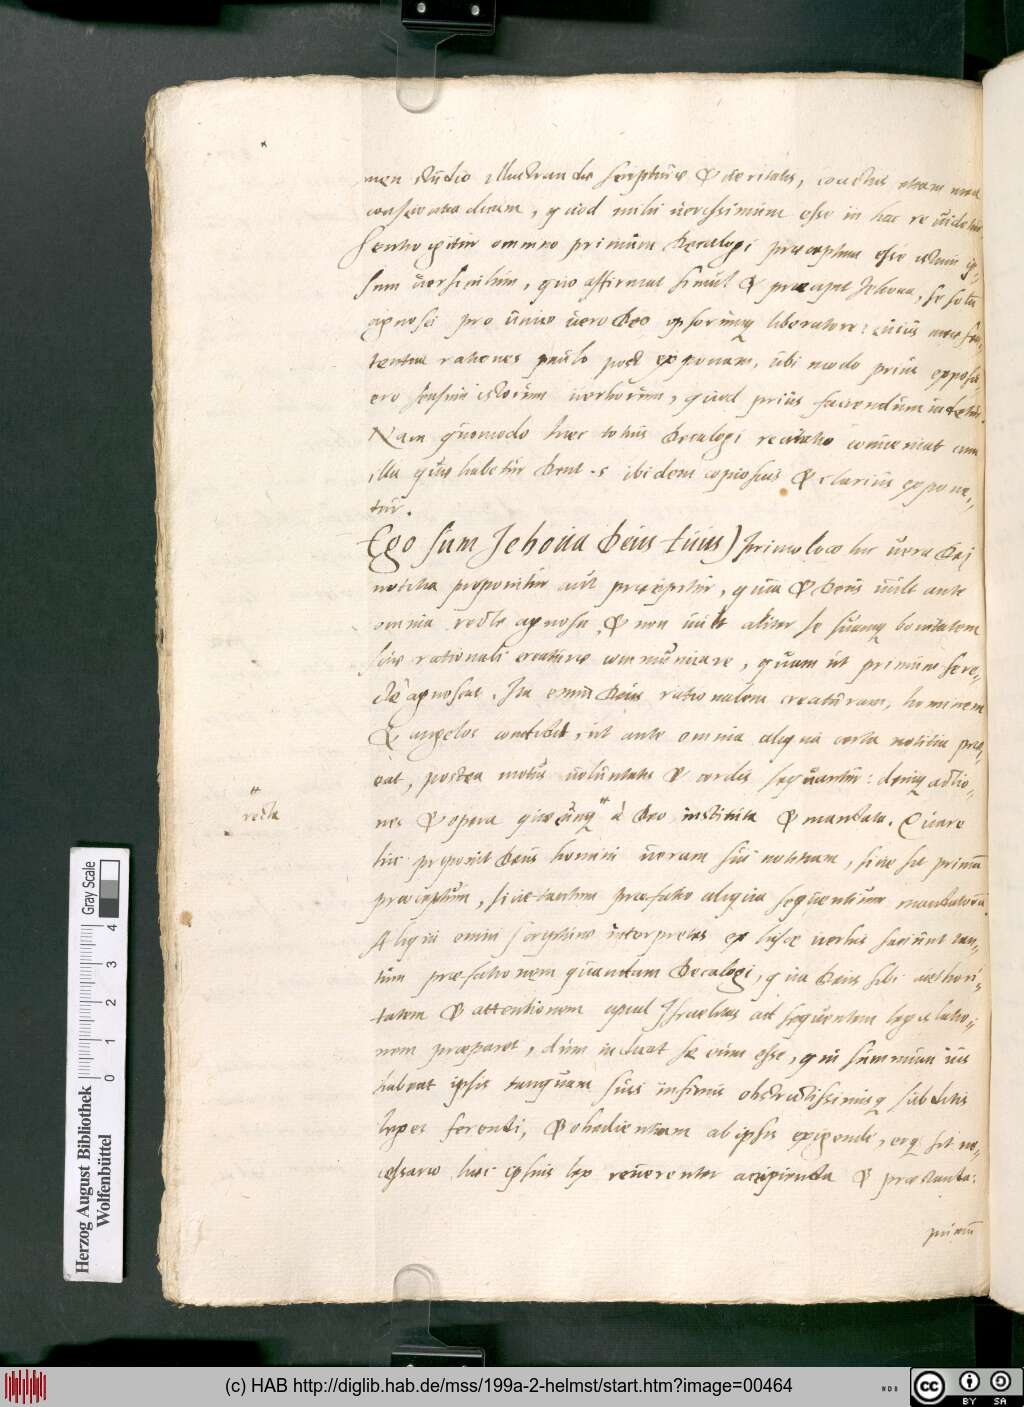 men studio illustrandæ scripturæ & veritatis, coactus etiam mea
conscientia dicam, quod mihi uerissimum esse in hac re uidetur
Sentio igitur omnino primum Decalogi præceptum esse istum ip„
sum uersiculum, quo affirmat simul & præcipit Jehoua, se solū
agnosci pro unico uero Deo ipsorumq liberatore: cuius meæ sen„
tentiæ rationes paulo post exponam, ubi modo prius exposu„
ero sensum istorum uerborum, quod prius faciendum uidetur.
Nam quomodo hæc totius Decalogi recitatio conueniat cum
illa quæ habetur Deut. 5 ibidem copiosius & clarius expone„
tur.
Ego sum Jehoua Deus tuus) primo loco hic uera Dej
notitia proponitur aut præcipitur, quia & Deus uult ante
omnia recte agnosci, & non uult aliter se suamq bonitatem
suæ rationali creaturæ communicare, quam ut primum se re„
cte agnoscat. Ita enim Deus rationalem creaturam, hominem
& angelos condidit, ut ante omnia aliqua certa notitia præ„
eat, postea motus uoluntatis & cordis sequantur: deniq actio„
nes & opera quæcunq # à Deo instituta & mandata. Quare
# recta
hic proponit Deus homini ueram sui notitiam, siue sit primū
præceptum, siue tantum præfatio aliqua sequentium mandatorū.
Aliqui enim scripturæ interpretes ex hisce uerbis faciunt tan„
tum præfationem quandam Decalogi, qua Deus sibi authori„
tatem & attentionem apud Israelitas ad sequentem legislatio„
nem præparet, dum indicat se eum esse, qui summum ius
habeat ipsis tanquam suis infimis obstrictissimisq subditis
leges ferendi, & obedientiam ab ipsis exigendi, ergo sit ne„
cessario hæc ipsius lex reuerenter accipienda & præstanda:
Herzog August Bibliothek
Wolfenbüttel
Gray Scale
0 1 2 3 4
(c) HAB http://diglib.hab.de/mss/199a-2-helmst/start.htm?image=00464
cc BY SA